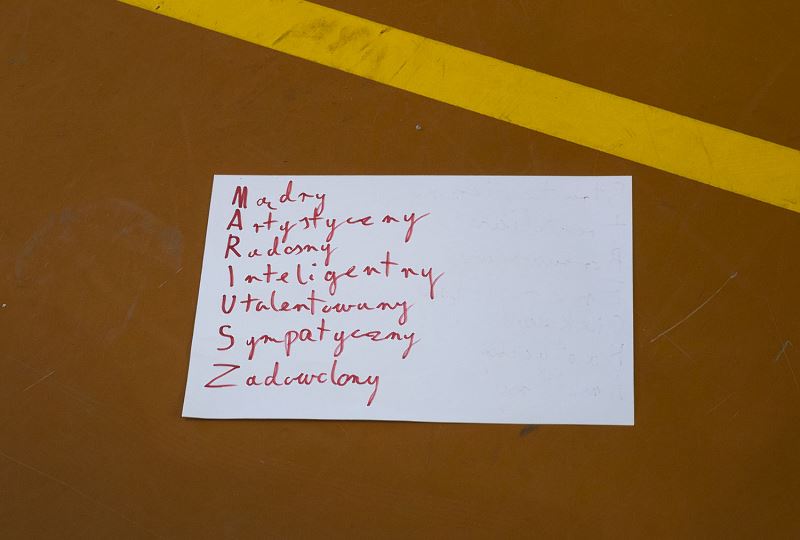 Mądry
Artystyczny
Radosny
Inteligentny
Utalentowany
Sympatyczny
Zadowolony